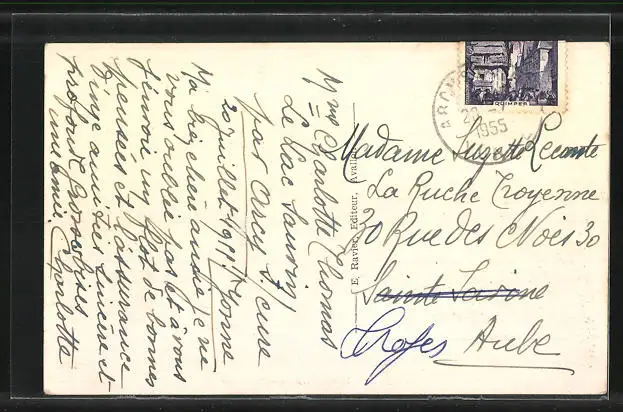 Mme Charlotte Thomas
Le Lac Sauvin
par Arcy s/ cure
20 juillet 1955 Yonne
Ma bien chère amie, je ne
vous oublie pas et à vous
j'envoie un flot de bonnes
pensées et l'assurance
d'une amitié sincère et
profonde
une amie. Charlotte
E. Ravier, Editeur, Avallon
QUIMPER
ARCY
1955
Madame Suzette Lecomte
La Ruche Troyenne
30 Rue des Noës 30
Sainte Savine
Troyes Aube